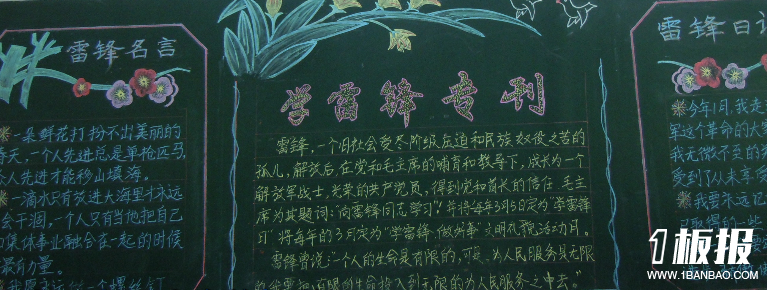 雷锋名言
※一朵鲜花打扮不出美丽的
春天,一个人先进总是单枪匹马,
人先进才能移山填海。
※一滴水只有放进大海里才永远
会干涸,一个人只有当他把自己
集体事业融合在一起的时候
最有力量。
一个螺丝钉
学雷锋专刊
雷锋,一个旧社会受尽阶级压迫和民族奴役之苦的
孤儿,解放后,在党和毛主席的哺育和教导下,成长为一个
解放军战士,光荣的共产党员,得到党和首长的信任,毛主
席为其题词:“向雷锋同志学习”!并将每年3月5日定为“学雷锋
日”将每年的3月定为“学雷锋、做好事”文明礼貌活动月。
雷锋曾说:“个人的生命是有限的,可是,为人民服务是无限
的,我要把有限的生命投入到无限的为人民服务之中去。”
雷锋日记
※今年1月,我走
军这个革命的大家
我无微不至的
受到了从未享受
※我要永远记
取得的一些
1板报
WWW.1BANBAO.COM